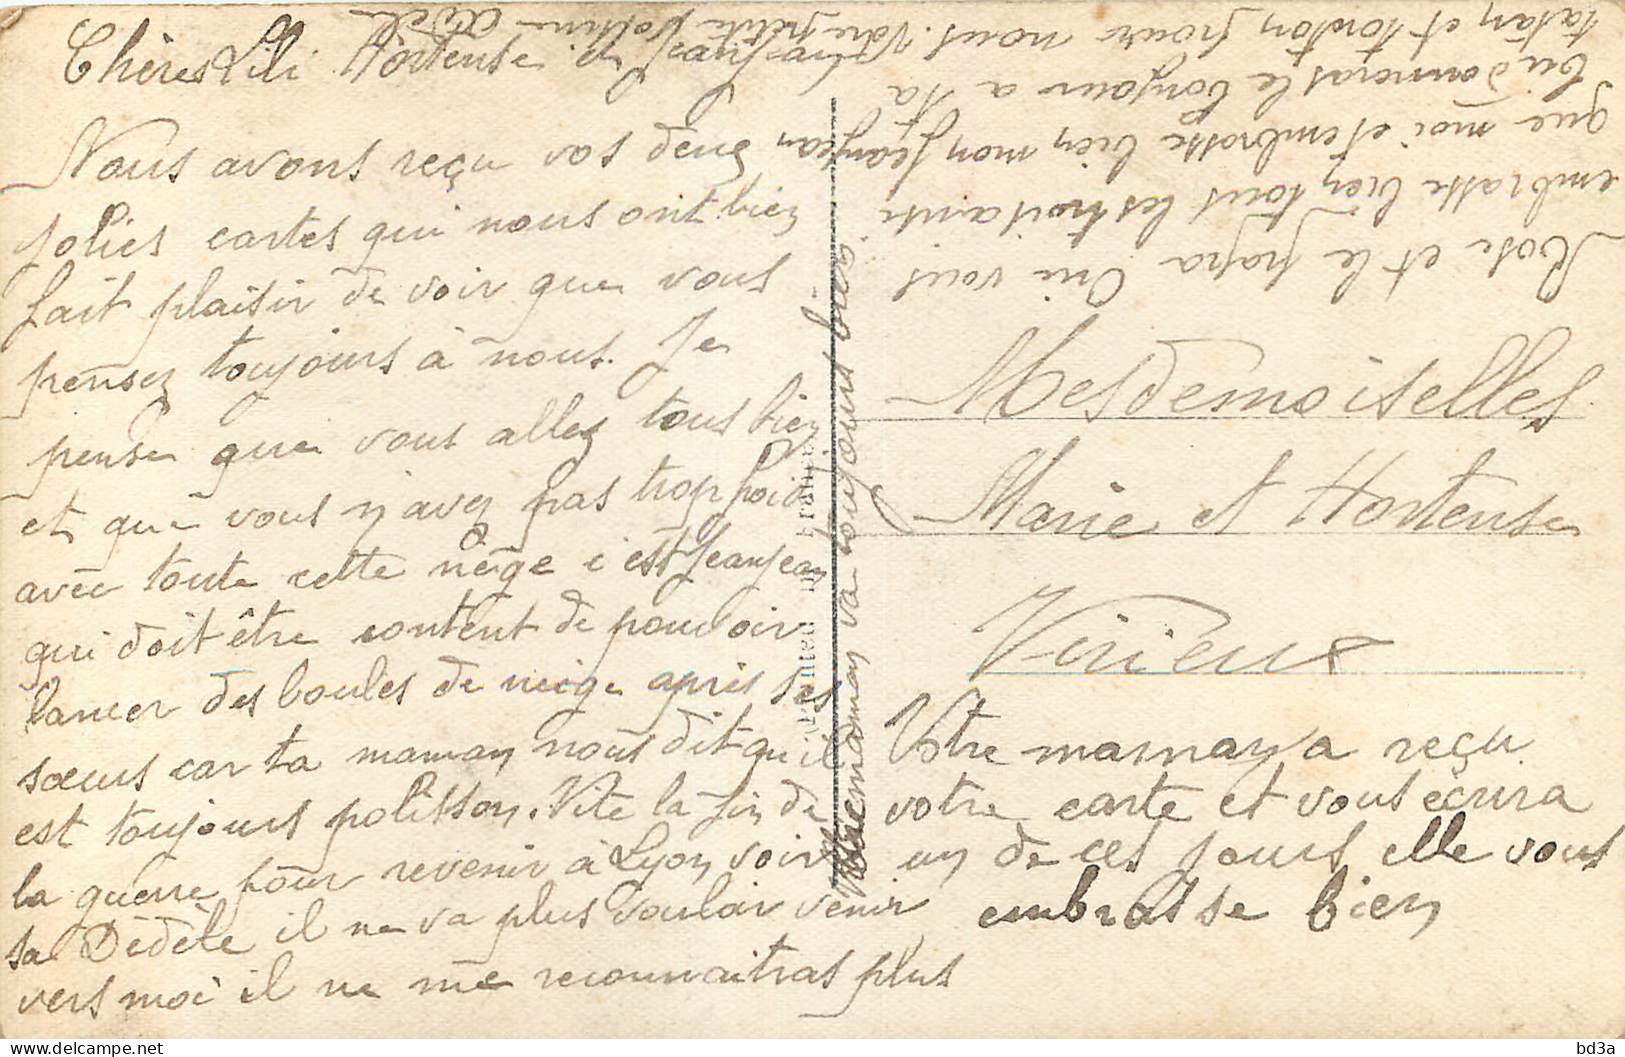 Chères Lili Hortense et Jeanjean
Nous avons reçu vos deux
jolies cartes qui nous ont bien
fait plaisir de voir que vous
pensez toujours à nous. Je
pense que vous allez tous bien
et que vous n'avez pas trop froid
avec toute cette neige c'est Jeanjean
qui doit être content de pouvoir
lancer des boules de neige apris ses
sœurs car ta maman nous dit qu'il
est toujours polisson. Vite la fin de
la guerre pour revenir à Lyon voir
sa Dédèle il ne va plus vouloir venir
vers moi il ne me reconnaitras plus
Mémaman va toujours bien
Rose et le papa Oui vous
embrasse bien tous les trois ainsi
que moi et embrasse bien mon Jeanjean
tu donneras le bonjour a ta
tatan et tonton pour nous. Votre petite
Mesdemoiselles
Marie et Hortense
Virieux
Votre maman a reçu
votre carte et vous ecrira
un de ces jours elle vous
embrasse bien
bd3a